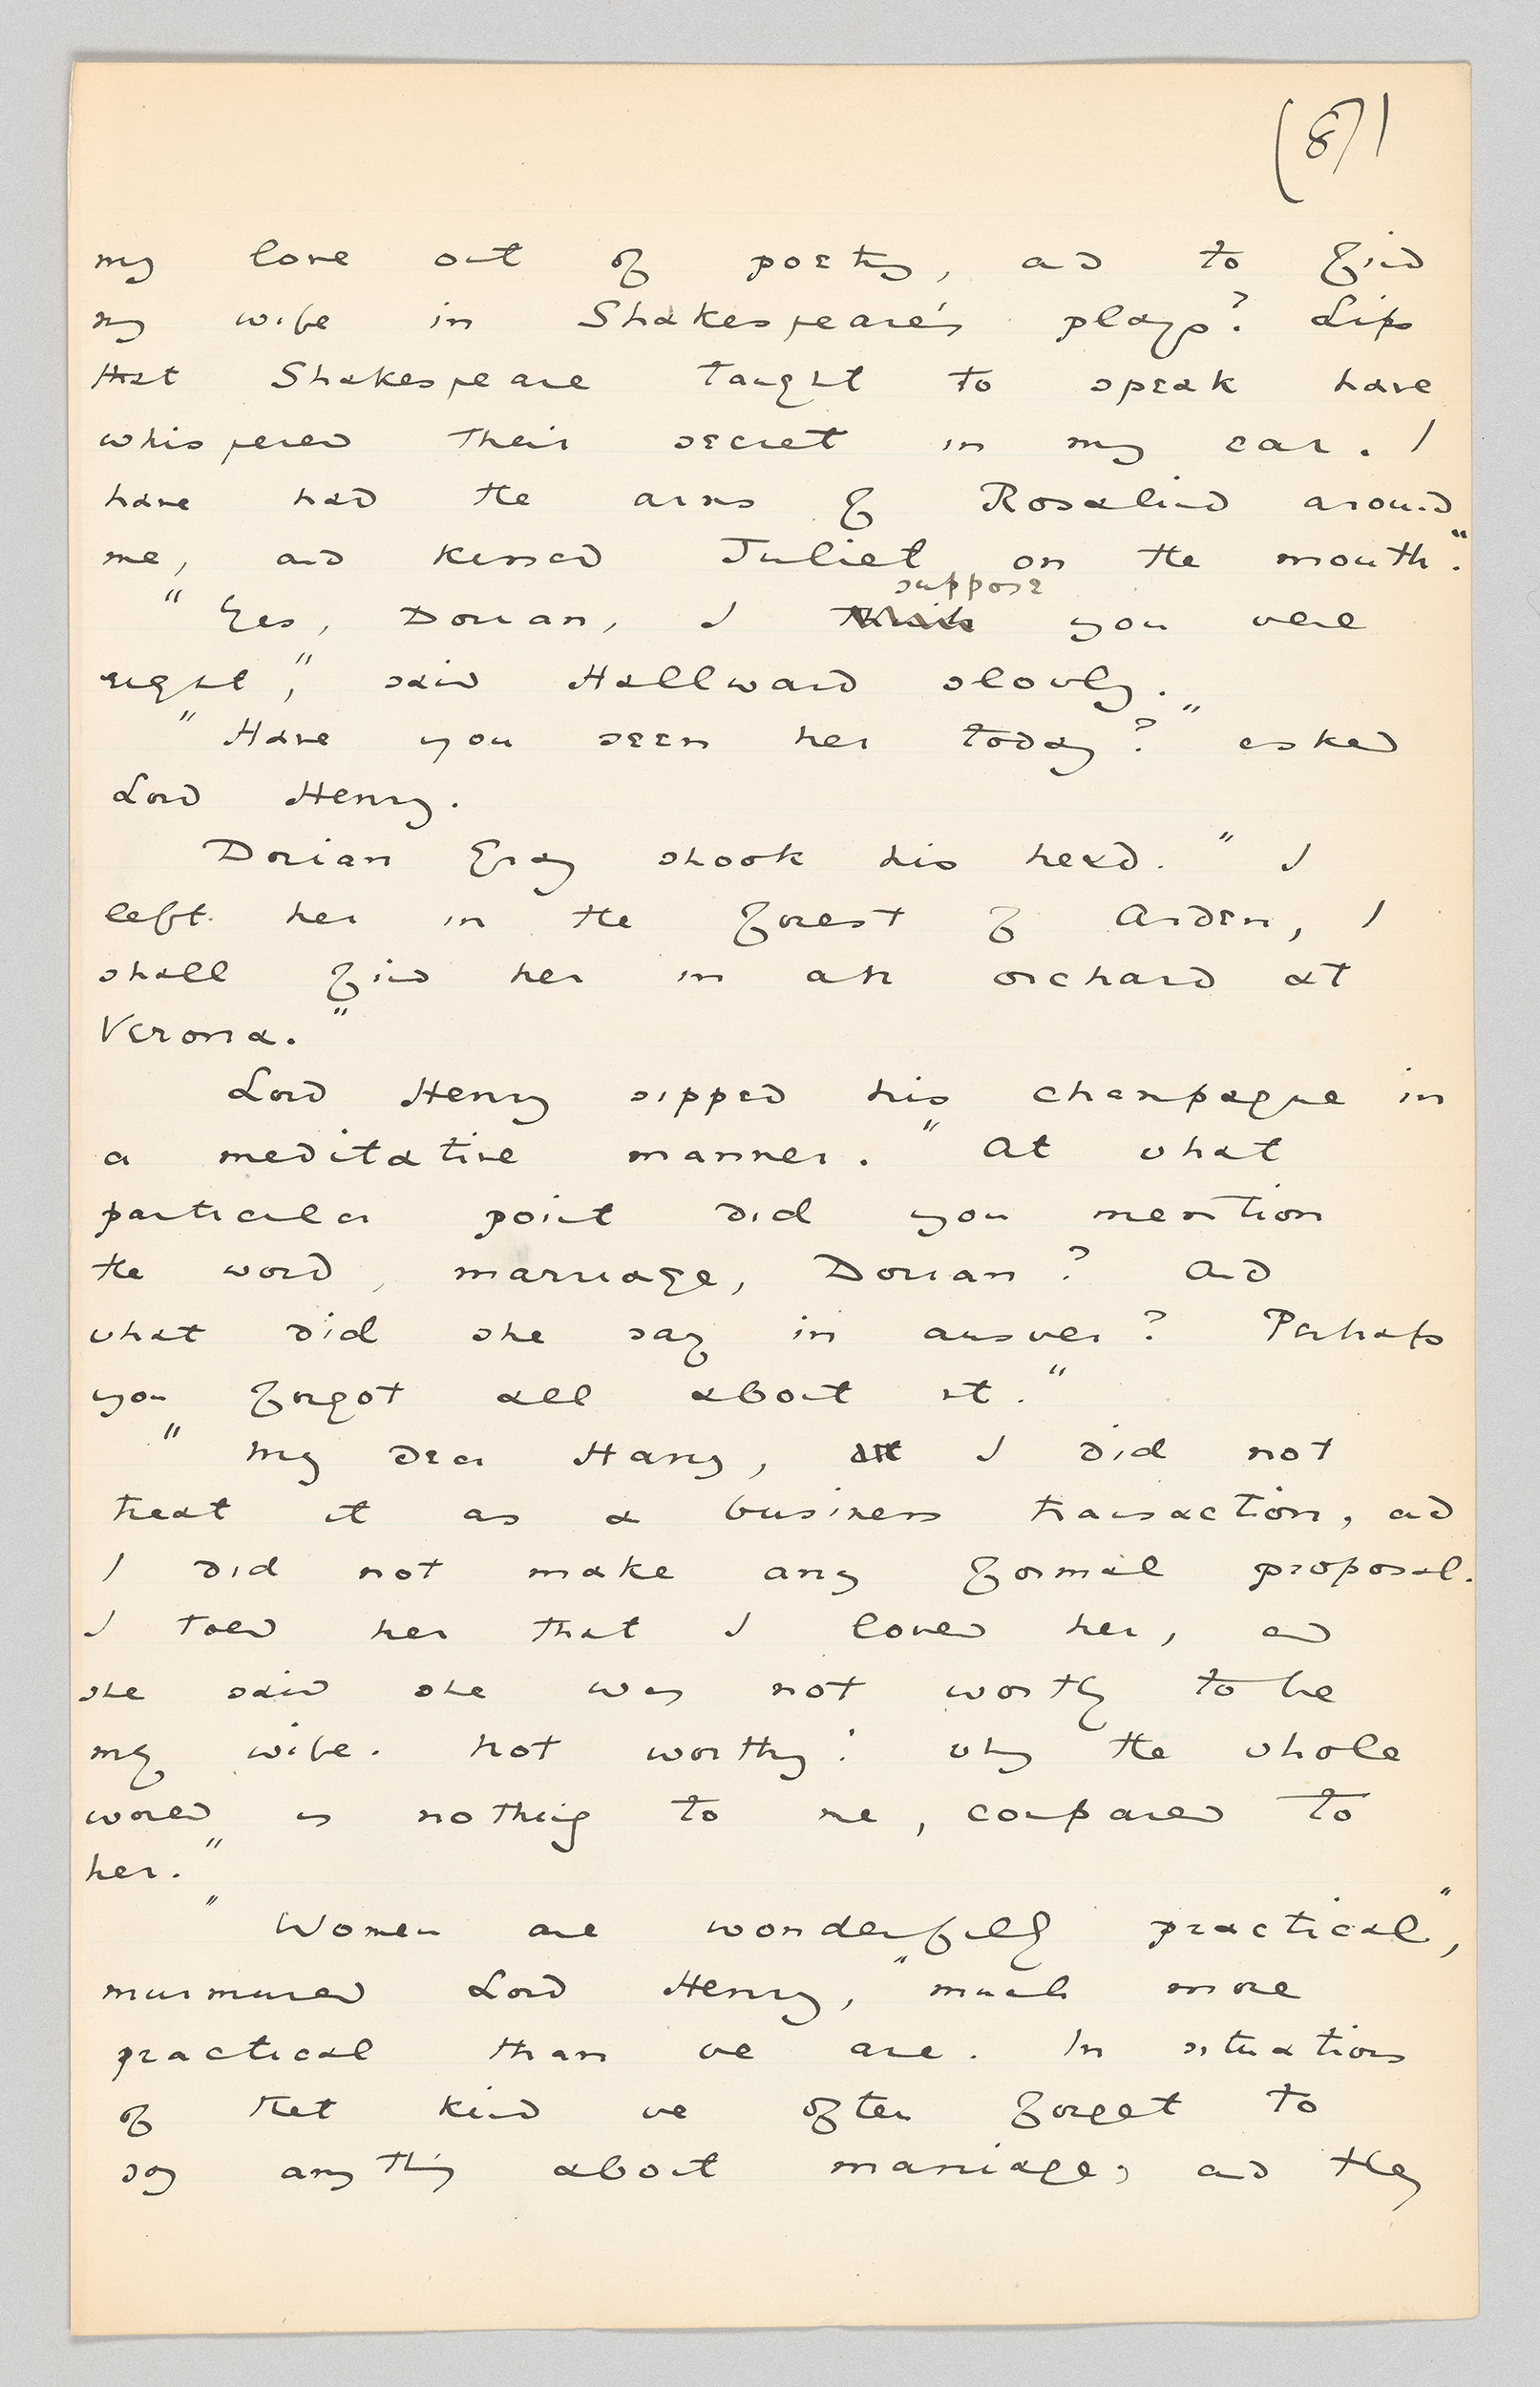 (8)
my love out of poetry, and to find
my wife in Shakespeare's plays? Lips
that Shakespeare taught to speak have
whispered their secret in my ear. I
have had the arms of Rosalind around
me, and kissed Juliet on the mouth."
suppose
"Yes, Dorian, I think you were
right," said Hallward slowly.
"Have you seen her today?" asked
Lord Henry.
Dorian Gray shook his head. "I
left her in the forest of Arden, I
shall find her in an orchard at
Verona."
Lord Henry sipped his champagne in
a meditative manner. "At what
particular point did you mention
the word, marriage, Dorian? And
what did she say in answer? Perhaps
you forgot all about it."
"My dear Harry, I did not
treat it as a business transaction, and
I did not make any formal proposal.
I told her that I loved her, and
she said she was not worthy to be
my wife. Not worthy! why the whole
world is nothing to me, compared to
her."
"Women are wonderfully practical",
murmured Lord Henry, "much more
practical than we are. In situations
of that kind we often forget to
say anything about marriage, and they